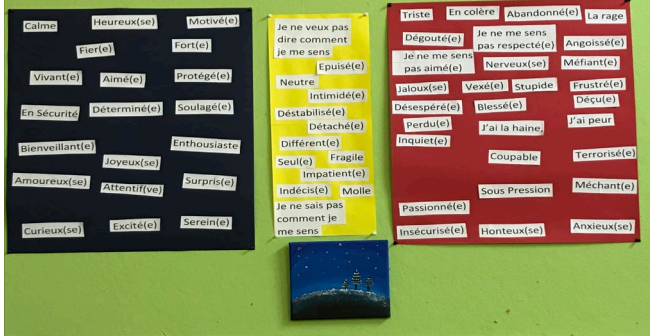 Calme
Heureux(se)
Motivé(e)
Fier(e)
Fort(e)
Vivant(e)
Aimé(e)
Protégé(e)
En Sécurité
Déterminé(e)
Soulagé(e)
Bienveillant(e)
Joyeux(se)
Enthousiaste
Amoureux(se)
Attentif(ve)
Surpris(e)
Curieux(se)
Excité(e)
Serein(e)
Je ne veux pas
dire comment
je me sens
Epuisé(e)
Neutre
Intimidé(e)
Déstabilisé(e)
Détaché(e)
Différent(e)
Seul(e)
Fragile
Impatient(e)
Indécis(e)
Molle
Je ne sais pas
comment je
me sens
Triste
En colère
Abandonné(e)
La rage
Dégouté(e)
Je ne me sens
pas respecté(e)
Angoissé(e)
Je ne me sens
pas aimé(e)
Nerveux(se)
Méfiant(e)
Jaloux(se)
Vexé(e)
Stupide
Frustré(e)
Désespéré(e)
Blessé(e)
Déçu(e)
Perdu(e)
J'ai la haine,
J'ai peur
Inquiet(e)
Coupable
Terrorisé(e)
Sous Pression
Méchant(e)
Passionné(e)
Insécurisé(e)
Honteux(se)
Anxieux(se)